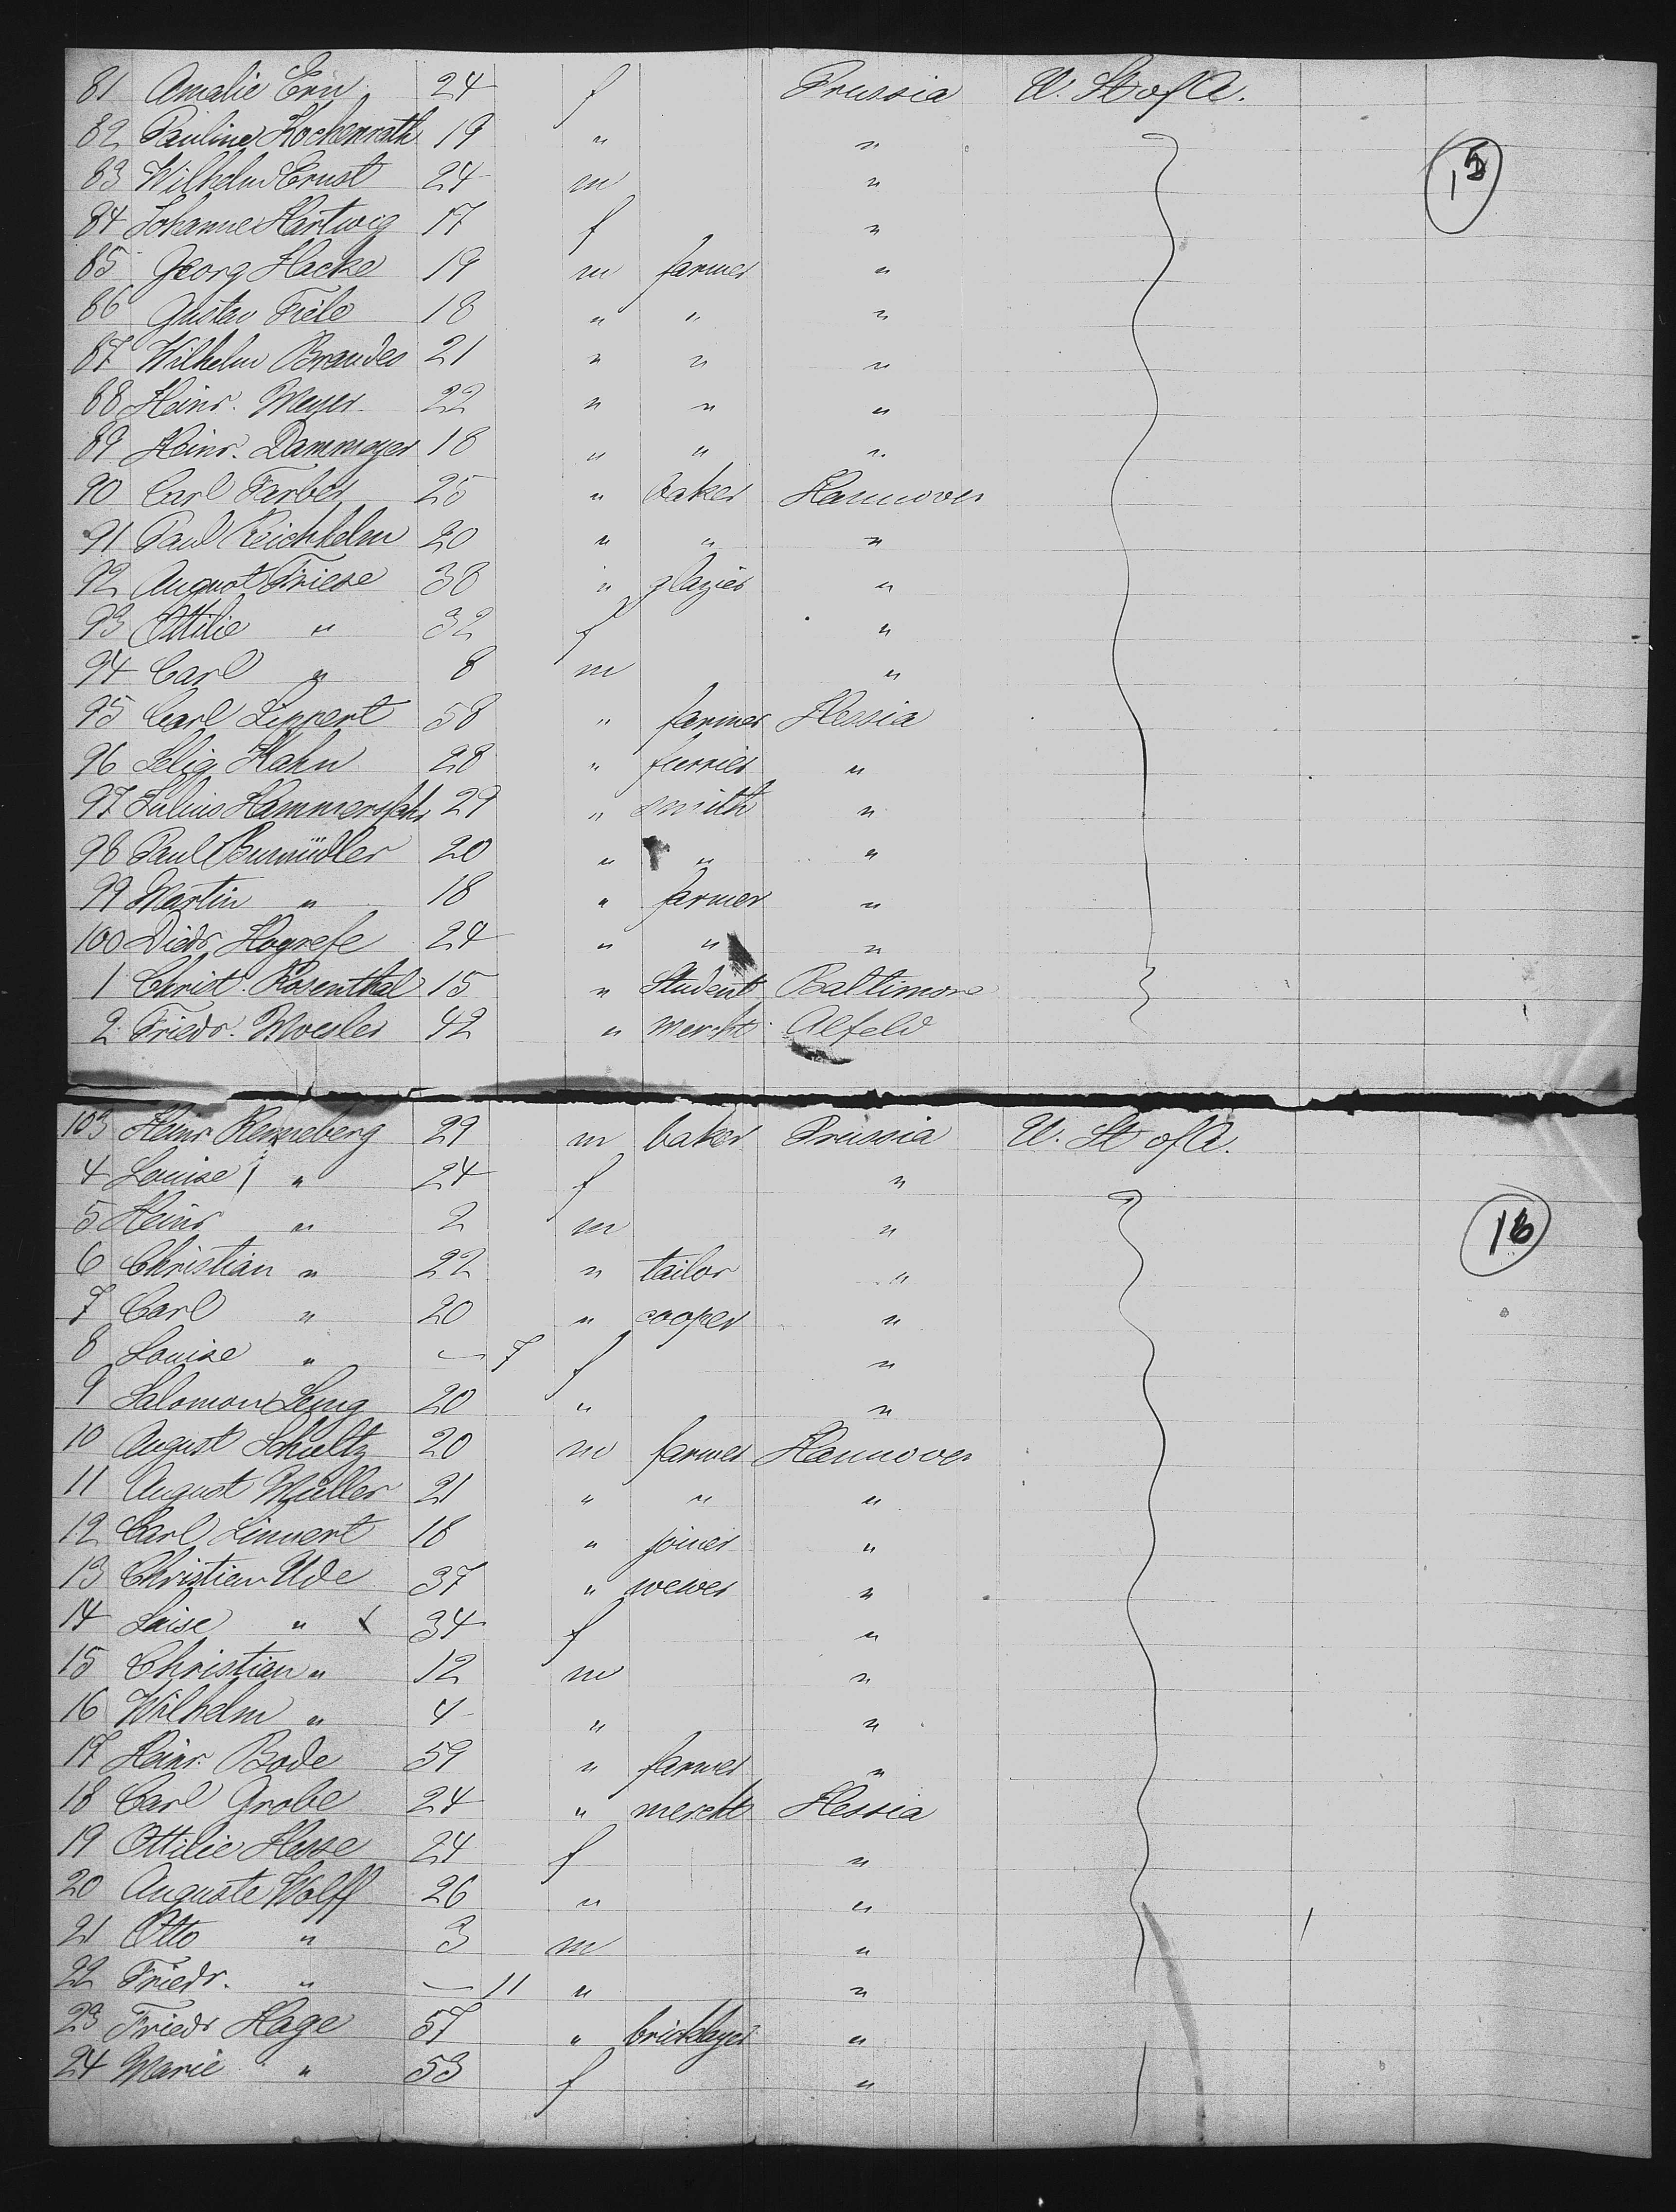 81 Amalie Ern 24 f Prussia U. St of A.
82 Pauline Kochenrath 19 " "
15
83 Wilhelm Ernst 24 m "
84 Johanne Hartwig 17 f "
85 Georg Hacke 19 m farmer "
86 Gustav Tiele 18 " " "
87 Wilhelm Brandes 21 " " "
88 Heinr. Meyer 22 " " "
89 Heinr. Dammeyer 18 " " "
90 Carl Farber 25 " baker Hannover
91 Paul Reichhelm 20 " " "
92 August Friese 38 " glazier "
93 Ottilie " 32 f "
94 Carl " 8 m "
95 Carl Lippert 58 " farmer Hessia
96 Selig Kahn 28 " furrier "
97 Julius 29 " smith "
98 Paul 20 " " "
99 Martin " 18 " farmer "
100 Diedr. Hogrefe 24 " " "
1 Christ. Rosenthal 15 " Student Baltimore
2 Friedr. 42 " mercht. Alfeld
103 Heinr. Renneberg 29 m baker Prussia U. St of A.
4 Louise " 24 f "
5 Heinr " 2 m "
16
6 Christian " 22 " tailor "
7 Carl " 20 " cooper "
8 Louise " — 7 f "
9 Salomon 20 " "
10 August Schultz 20 m farmer Hannover
11 August Müller 21 " " "
12 Carl Linnert 18 " joiner "
13 Christian Ude 37 " wewer "
14 Luise " x 34 f "
15 Christian " 12 m "
16 Wilhelm " 4 " "
17 Heinr. Bode 59 " farmer "
18 Carl Grobe 24 " mercht Hessia
19 Ottilie Hesse 24 f "
20 Auguste Wolff 26 " "
21 Otto " 3 m "
22 Friedr. " — 11 " "
23 Friedr Hage 57 " bricklayer "
24 Marie " 53 f "